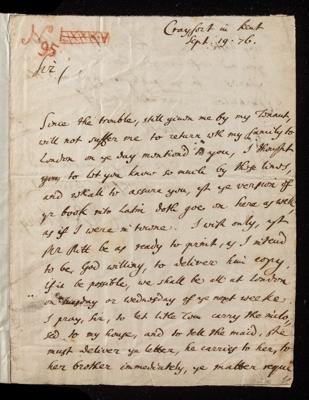 No 95
Crayfort in Kent
Sept. 19. 76.
Sir
Since the trouble, still given me by my Tenant,
will not suffer me to return wth my family to
London on ye day mentiond to you, I thought
good to let you know so much by these lines,
and withall to assure you, yt ye version of
yr book into Latin doth goe on here as well
as if I were in towne. I wish only, yt
Mr Pitt be as ready to print, as I intend
to be, God willing, to deliver him copy.
If it be possible, we shall be all at London
on Tuesday or wednesday of ye next weeke.
I pray, Sir, to let Tom carry the inclo
sed to my house, and to tell the maid, she
must deliver ye letter, he carries to her, to
her brother immediately, ye matter requi